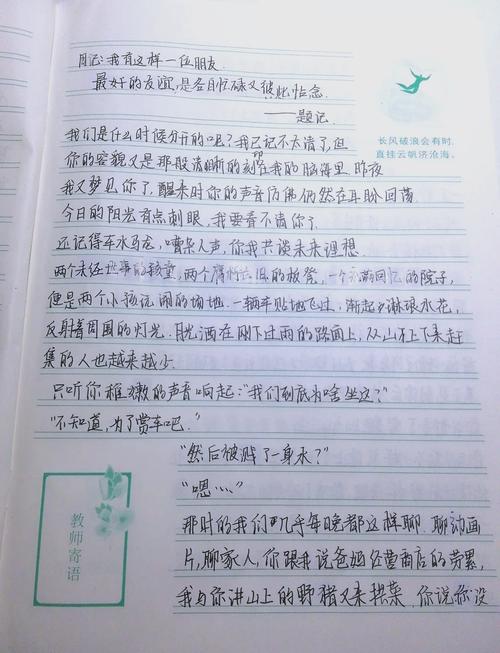 月记:我有这样一位朋友
最好的友谊,是各自忙碌又彼此惦念.
——题记.
长风破浪会有时,
直挂云帆济沧海。
我们是什么时候分开的呢?我已记不太清了,但
你的容貌又是那般清晰的刻印在我的脑海里.昨夜
我又梦见你了,醒来时你的声音仿佛仍然在耳盼回荡.
今日的阳光有点刺眼,我要看不清你了.
还记得车水马龙,嘈杂人声,你我共谈未来理想.
两个未经世事的孩童,两个腐朽的板凳,一个回忆的院子,
便是两个小孩玩闹的场地.一辆车贴地飞过,渐起了淋琅水花,
反射着周围的灯光.月光洒在刚下过雨的路面上,从山不上下来赶
集的人也越来越少.
只听你稚嫩的声音响起:"我们到底为啥坐这?"
"不知道,为了赏车吧."
"然后被溅了一身水?"
"嗯……"
那时的我们几乎每晚都这样聊.聊动画
片,聊家人,你跟我说爸妈经营商店的劳累,
我与你讲山上的野猪又来拱菜.你说你没
教师寄语